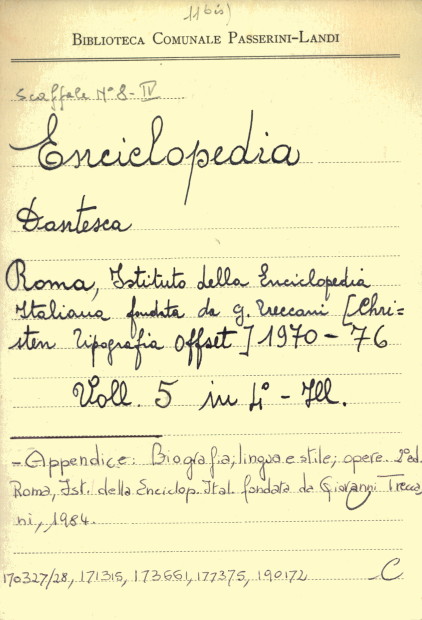 11bis)
BIBLIOTECA COMUNALE PASSERINI-LANDI
Scaffale N° 8 - IV
Enciclopedia
Dantesca
Roma, Istituto della Enciclopedia
Italiana fondata da G. Treccani [Chri=
sten Tipografia Offset] 1970-76
Voll. 5 in 4° - Ill.
- Appendice: Biografia, lingua e stile, opere. 2° ed.
Roma, Ist. della Enciclop. Ital. fondata da Giovanni Trecca
ni, 1984.
170327/28, 171315, 173661, 177375, 190172 C